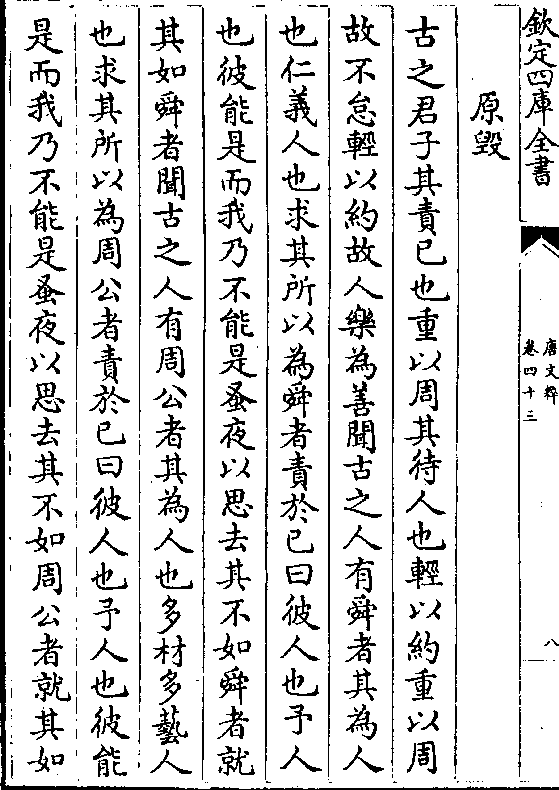 欽定四庫全書
唐文粹
卷四十三
八
原毀
古之君子其責已也重以周其待人也輕以約重以周
故不怠輕以約故人樂為善聞古之人有舜者其為人
也仁義人也求其所以為舜者責於已曰彼人也予人
也彼能是而我乃不能是蚤夜以思去其不如舜者就
其如舜者聞古之人有周公者其為人也多材多藝人
也求其所以為周公者責於已曰彼人也予人也彼能
是而我乃不能是蚤夜以思去其不如周公者就其如